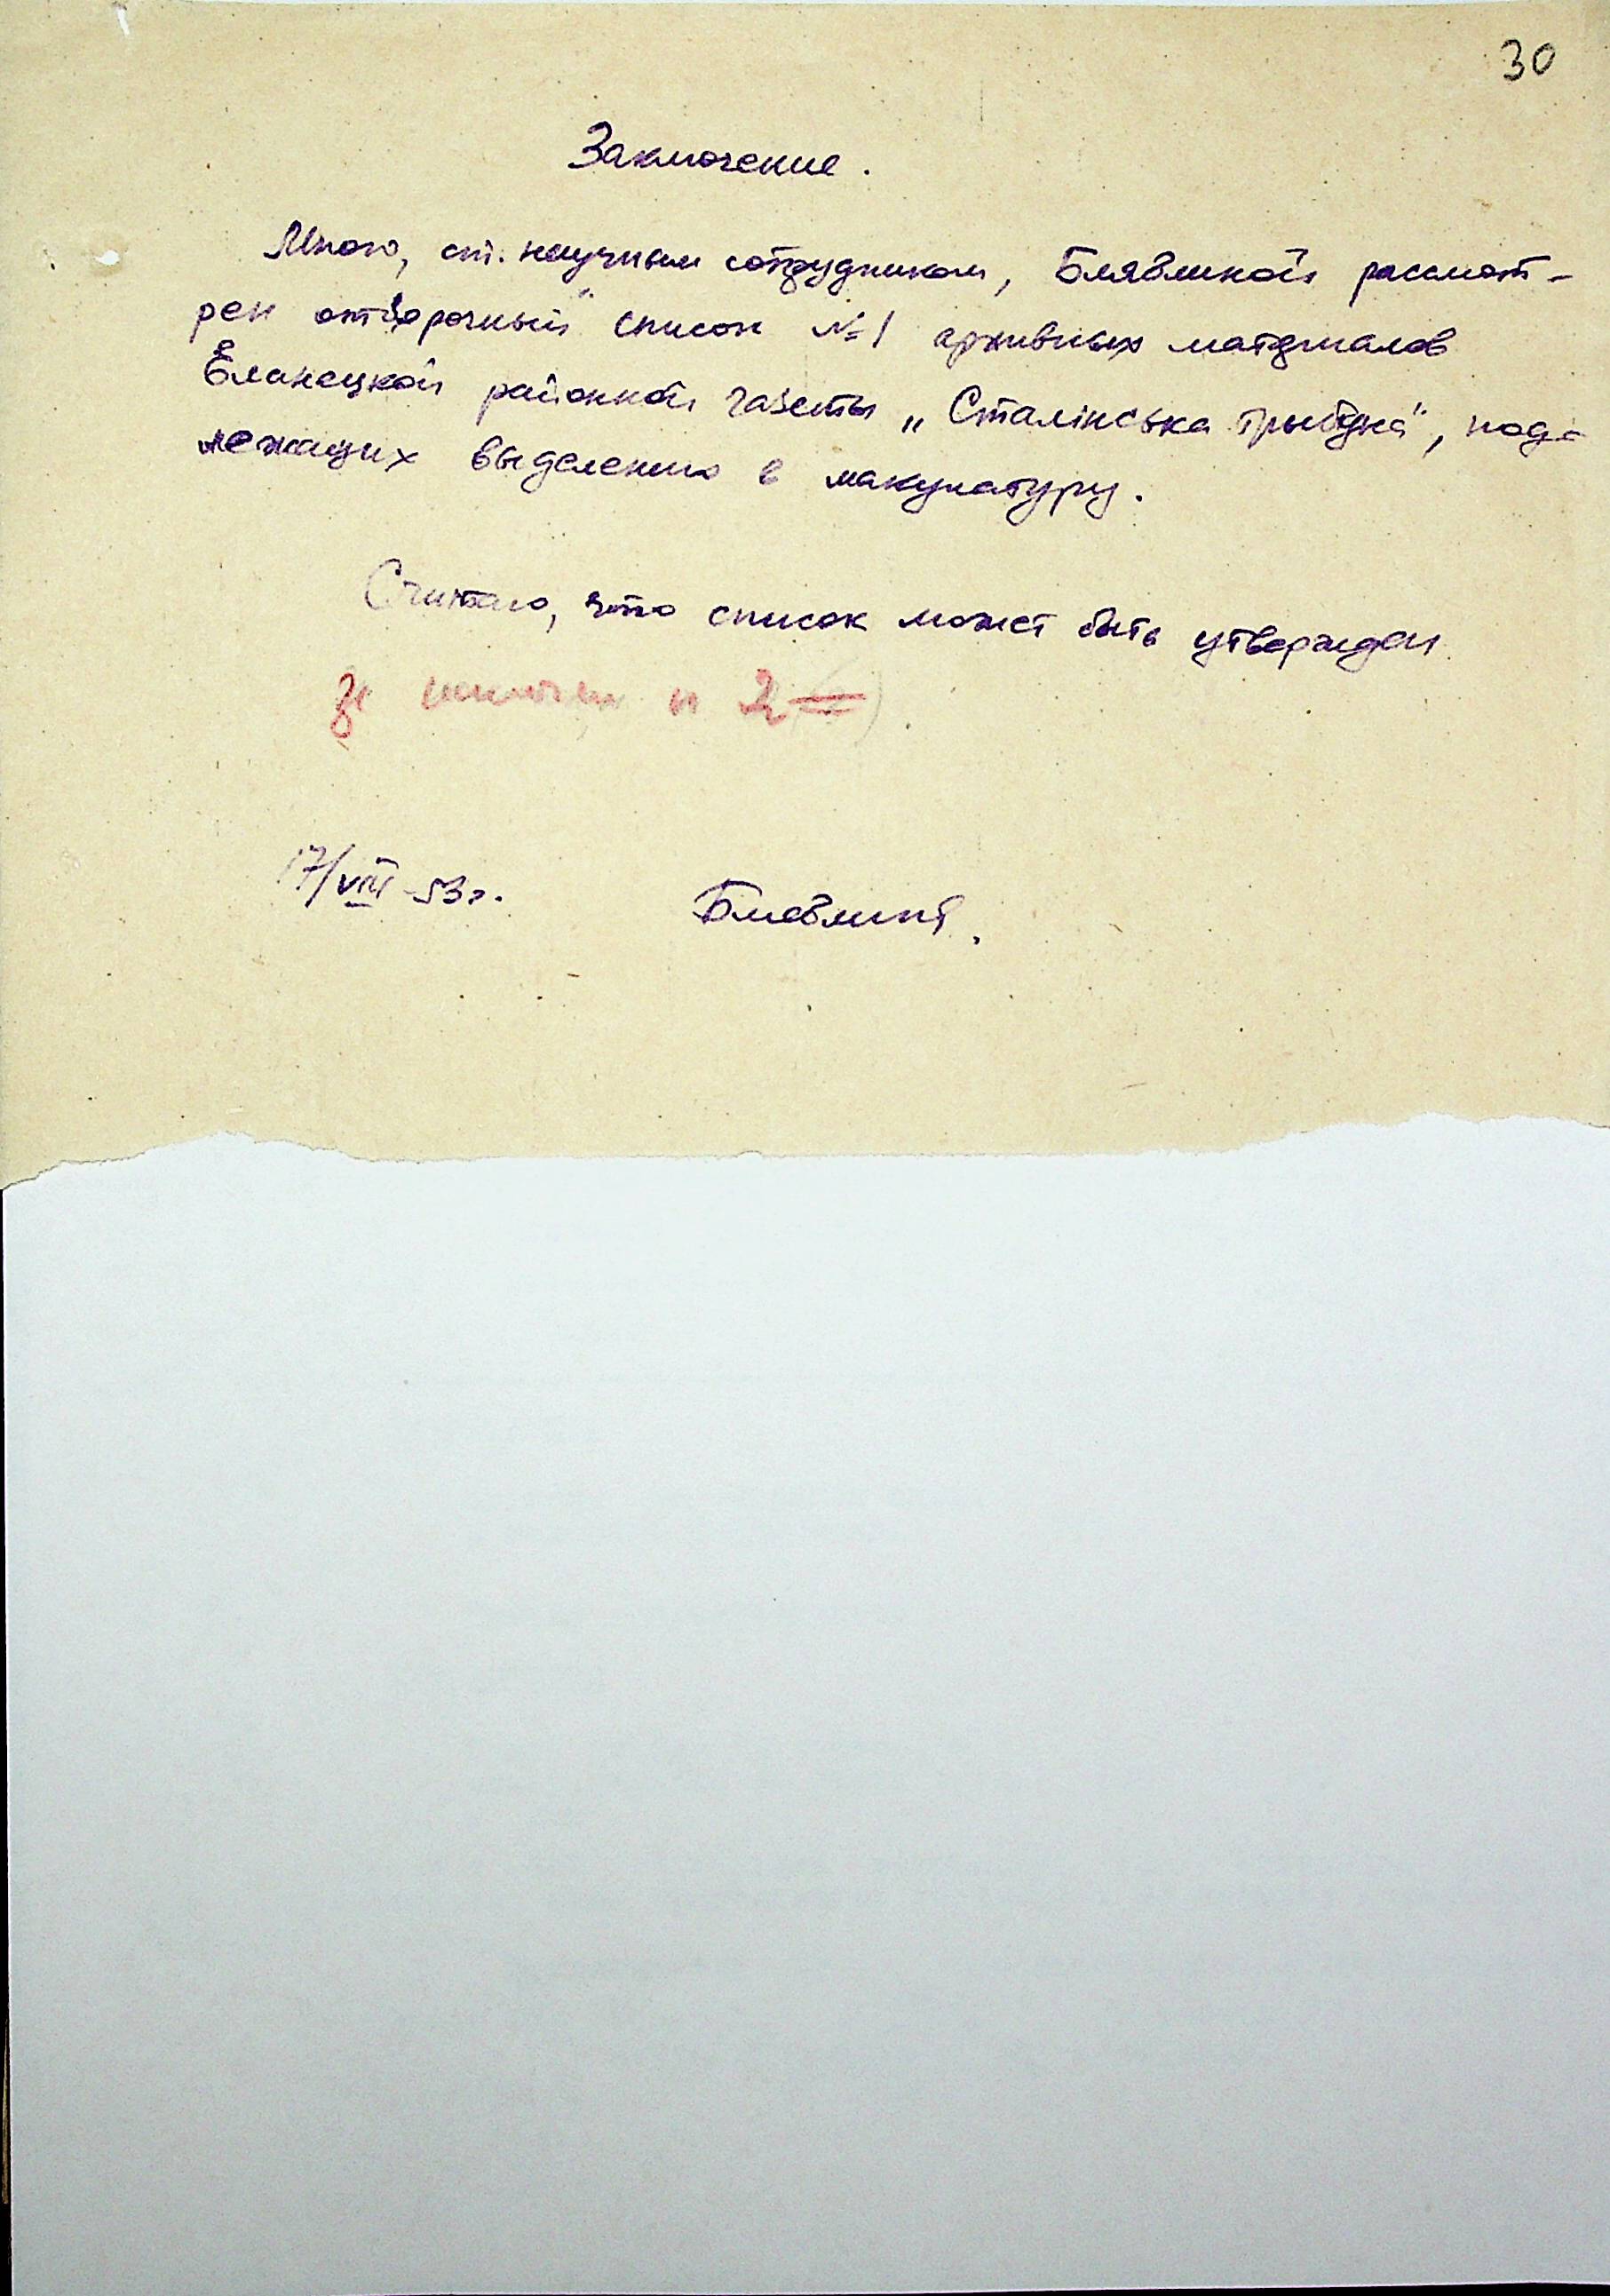 30
Заключение.
Мною, ст. научным сотрудником, Блявлиной рассмот-
рен отборочный список №1 архивных материалов
Еланецкой районной газеты „Сталінська трибуна", под-
лежащих выделению в макулатуру.
Считаю, что список может быть утвержден
17/VIII-53г.